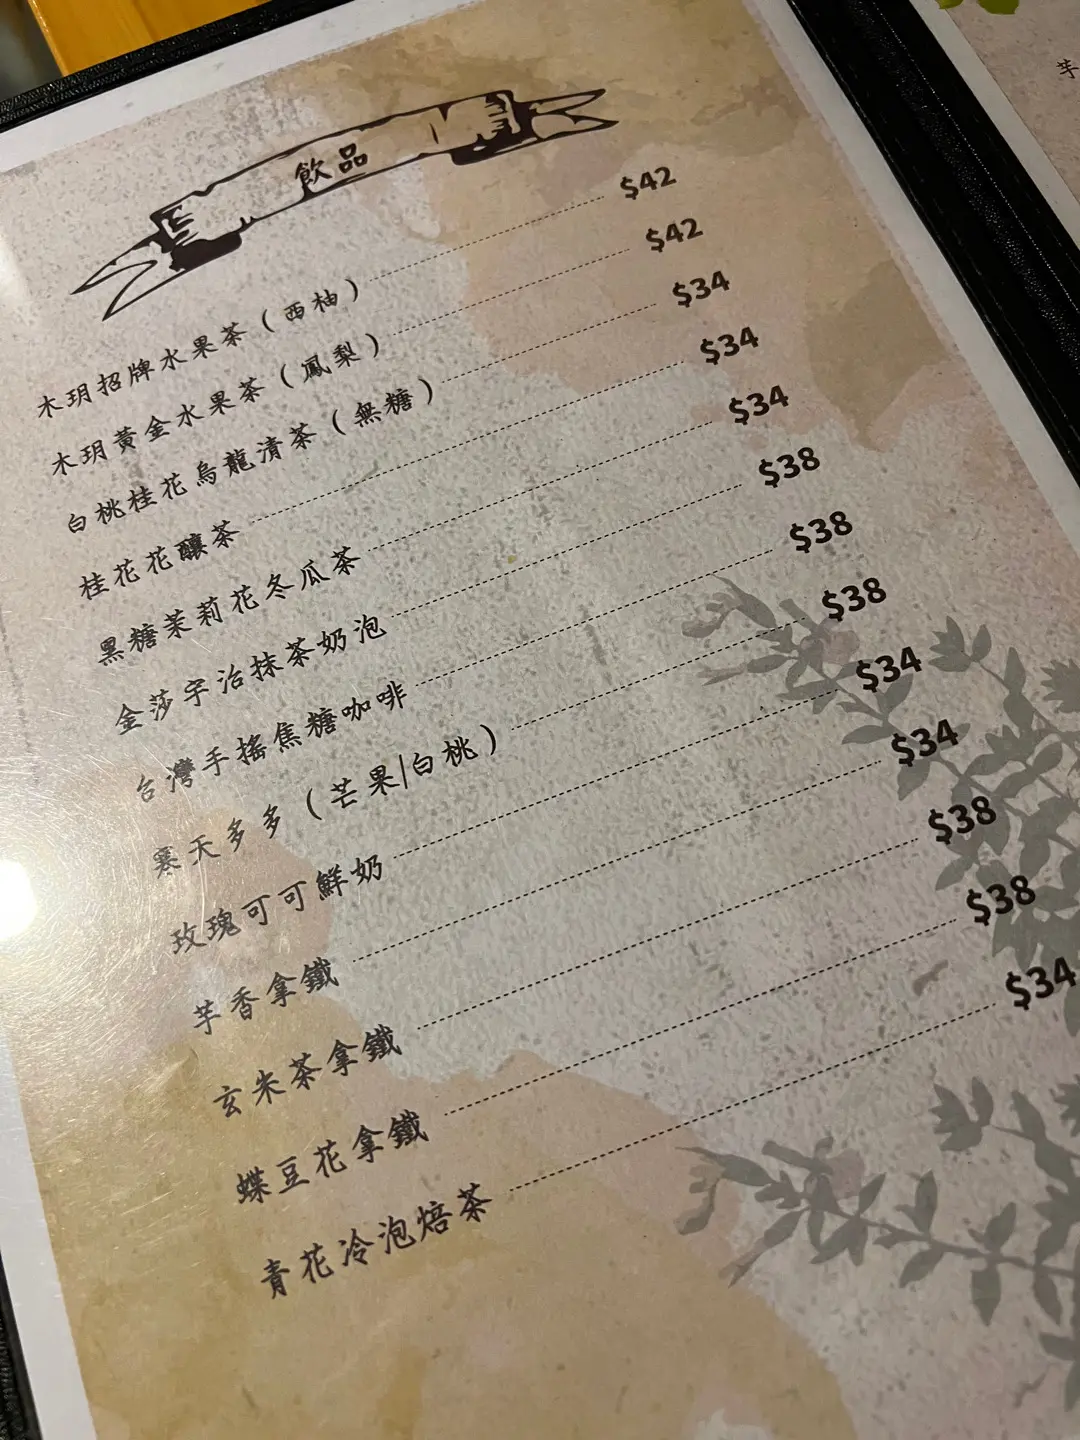 飲品
木玥招牌水果茶（西柚） $42
木玥黃金水果茶（鳳梨） $42
白桃桂花烏龍清茶（無糖） $34
桂花花釀茶 $34
黑糖茉莉花冬瓜茶 $34
金莎宇治抹茶奶泡 $38
台灣手搖焦糖咖啡 $38
寒天多多（芒果/白桃） $38
玫瑰可可鮮奶 $34
芋香拿鐵 $34
玄米茶拿鐵 $38
蝶豆花拿鐵 $38
青花冷泡焙茶 $34
芋